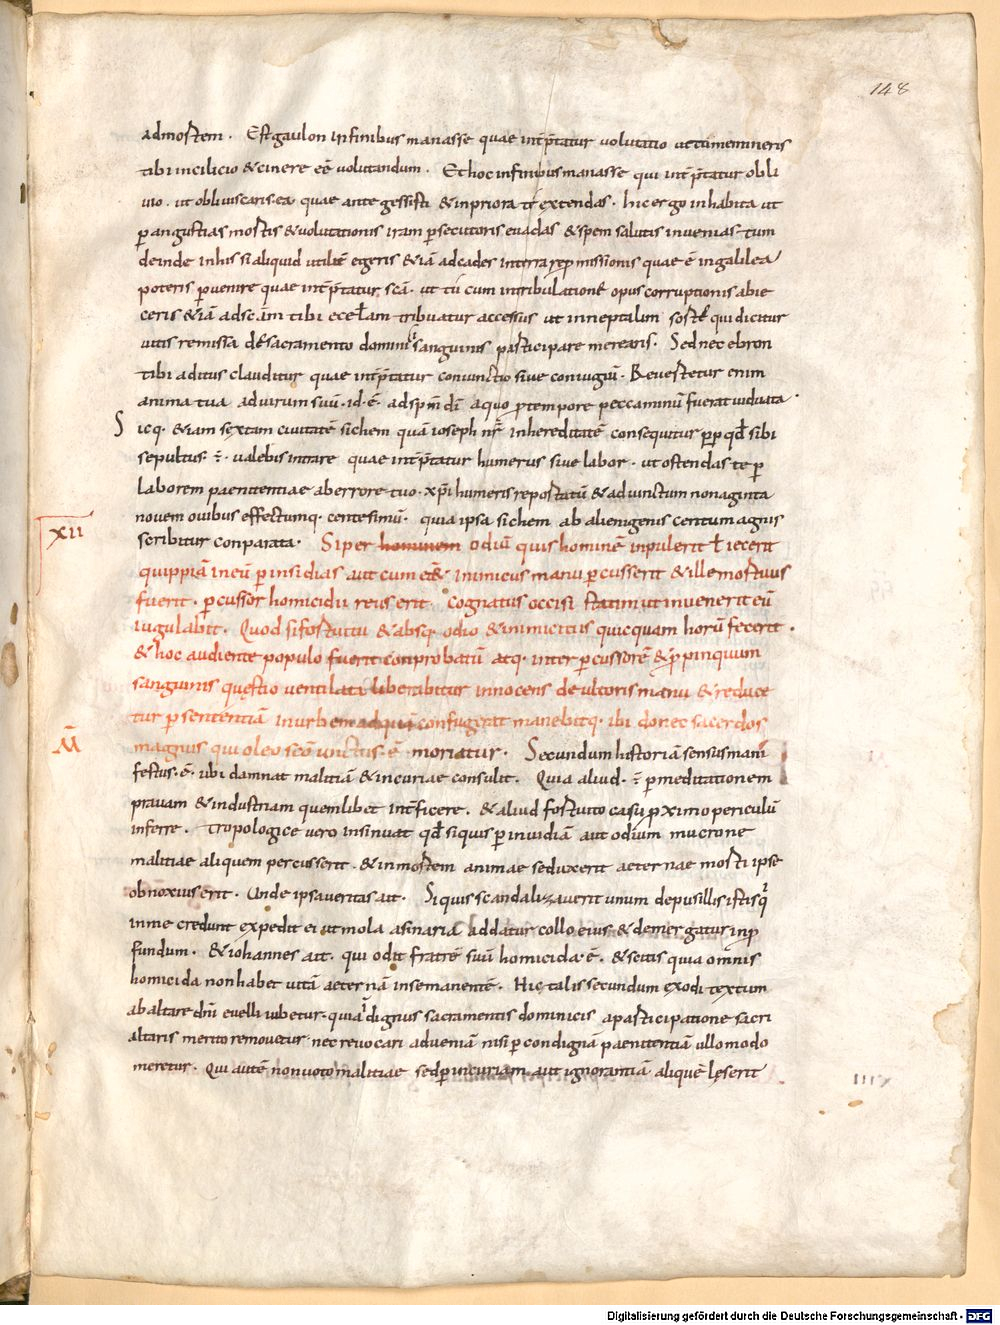 148
ad mortem. Est gaulon in finibus manasse quae int̄p̄tatur volutatio ut tū memineris
tibi in cilicio & cinere eē volutandum. Et hoc in finibus manasse qui int̄p̄tatur obli
uio. ut obliuiscaris ea quae ante gessisti & in priora te extendas. hic ergo inhabita ut
p̱ angustias mortis & volutationis iram p̱secutoris euadas & spem salutis inuenias. tum
deinde in his si aliquid utilitē egeris & iā ad cades in terra rep̱missionis quae ē in galilea
poteris p̱uenire quae int̄p̄tatur sc̄a. ut tū cum in tribulatione opus corruptionis abie
ceris & iā ad sc̄am tibi eccłam tribuatur accessus ut in neptalim sorte qui dicitur
uitis remissa de sacramento dominici sanguinis participare merearis. Sed nec ebron
tibi aditus clauditur quae int̄p̄tatur coniunctio siue coniugiū. Reuertetur enim
anima tua ad uirum suū. id. ē. ad sp̄m dī a quo p̱ tempore peccaminū fuerat uiduata.
Sicq. & iam sextam ciuitatē sichem quā ioseph nr̄ in hereditatē consequitur p̱p̱ qđ sibi
sepultus. ÷. ualebis intrare quae int̄p̄tatur humerus siue labor. ut ostendas te p̱
laborem paenitentiae ab errore tuo. xp̄i humeris reportatū & adiunctum nonaginta
nouem ouibus effectumq. centesimū. quia ipsa sichem ab alienigenis centum agnis
scribitur conparata. Si per hominem odiū quis hominē inpulerit ł iecerit
XII
quippiā in eū p̱ insidias aut cum eēt inimicus manu p̱cusserit & ille mortuus
fuerit. p̱cussor homicidii reus erit. Cognatus occisi statim ut inuenerit eū
iugulabit. Quod si fortuitu & absq. odio & inimicitiis quicquam horū fecerit.
& hoc audiente populo fuerit conprobatū atq. inter p̱cussorē & p̱pinquum
sanguinis questio uentilata liberabitur innocens de ultoris manu & reduce
tur p̱ sententiā in urbem ad quā confugerat manebitq. ibi donec sacerdos
M̄
magnus qui oleo sc̄o unctus. ē. moriatur. Secundum historiā sensus mani
festus. ē. ubi damnat malitiā & incuriae consulit. Quia aliud. ÷ p̱ meditationem
prauam & industriam quemlibet int̄ficere. & aliud fortuito casu p̱ximo periculū
inferre. Tropologice uero insinuat qđ si quis p̱ inuidiā aut odium mucrone
malitiae aliquem percusserit. & in mortem animae seduxerit aeternae morti ipse
obnoxius erit. Unde ipsa ueritas ait. Si quis scandalizauerit unum de pusillis istis q̇
in me credunt expedit ei ut mola asinaria addatur collo eius & demergatur in p̱
fundum. & iohannes ait. qui odit fratrē suū homicida. ē. & scitis quia omnis
homicida non habet uitā aeternā in se manentē. Hic talis secundum exodi textum
ab altare dn̄i euelli iubetur. quia indignus sacramentis dominicis a participatione sacri
altaris merito remouetur nec reuocari ad ueniā nisi p̱ condignā paenitentiā ullo modo
meretur. Qui autē non uoto malitiae sed p̱ incuriam aut ignorantiā aliquē lęserit
XIII
Digitalisierung gefördert durch die Deutsche Forschungsgemeinschaft - DFG